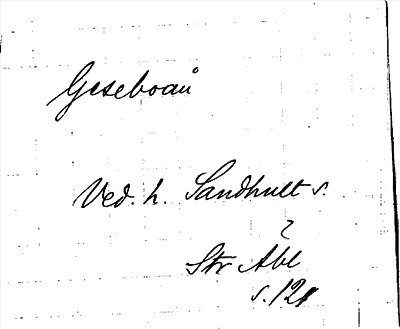 Geseboaån
Ved. h. Sandhult s.
?
Str Åbl
s. 121